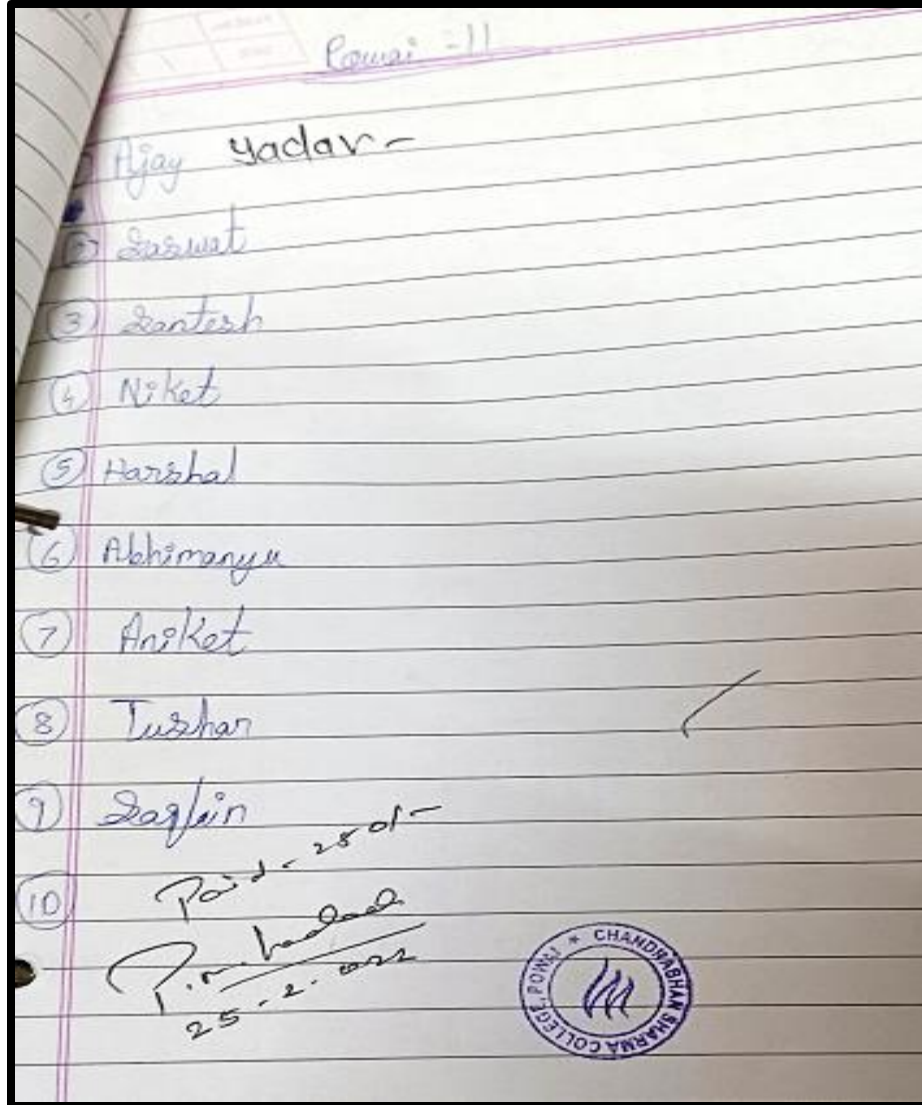 Powai - 11
Ajay Yadav -
② Saswat
③ Santesh
④ Niket
⑤ Harshal
⑥ Abhimanyu
⑦ Aniket
⑧ Tushar
⑨ Saqlain
⑩
Paid - 250/-
25-2-2022
CHANDRABHAN SHARMA COLLEGE, POWAI *